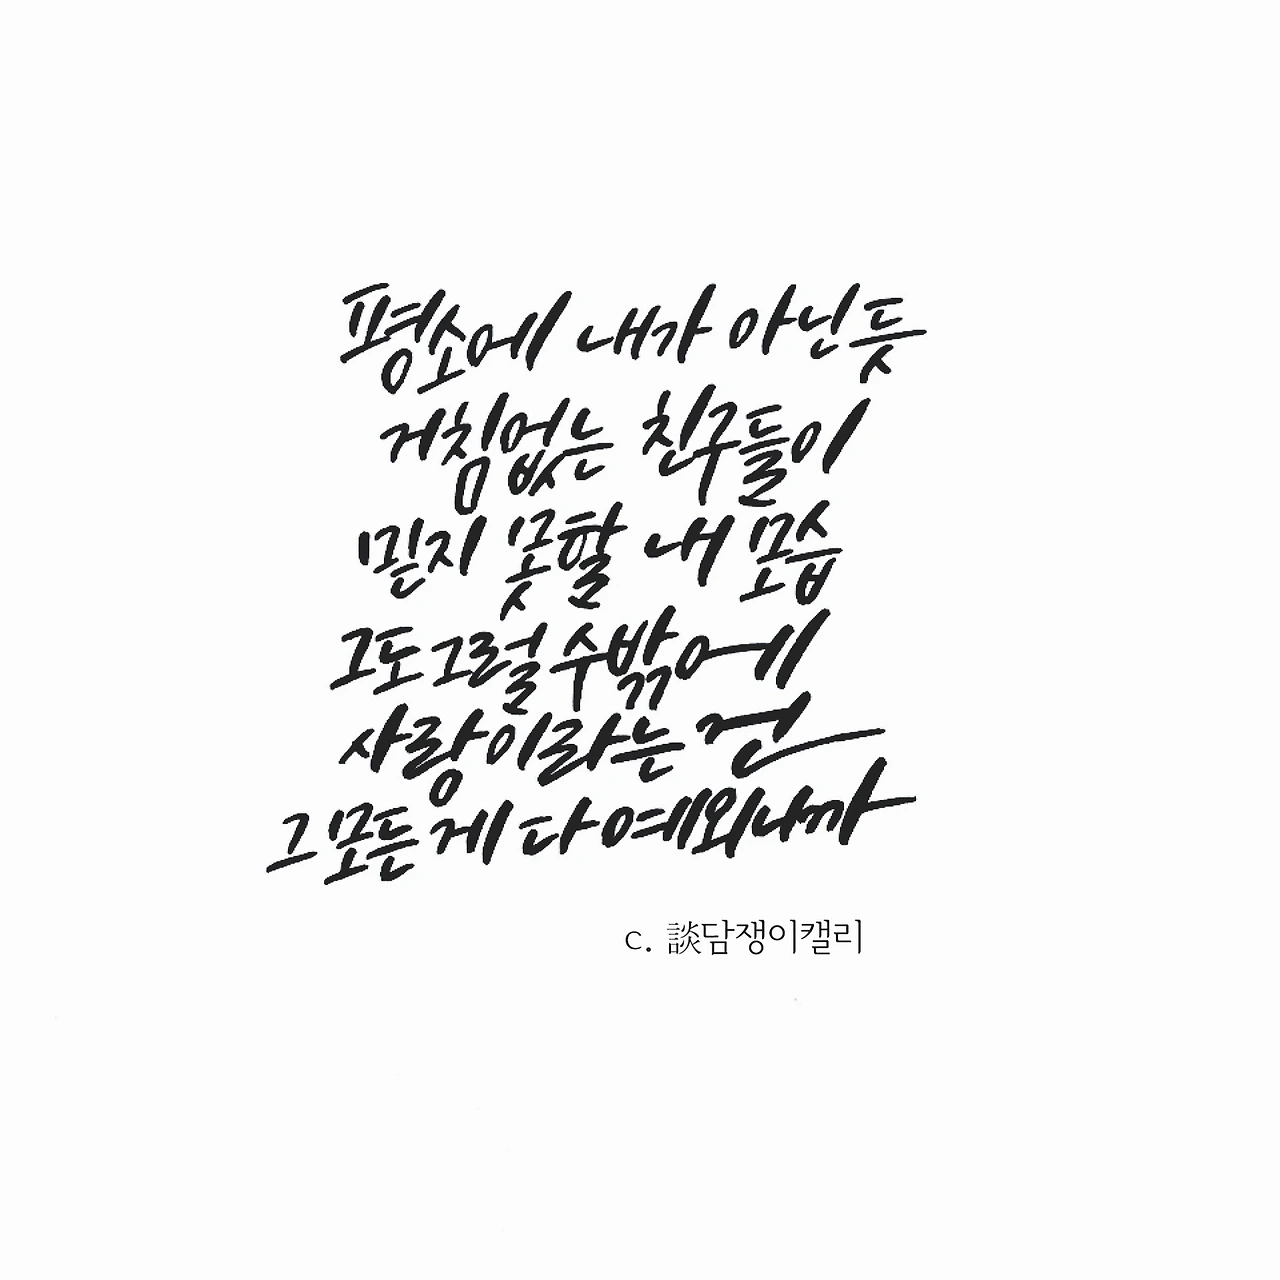 평소에 내가 아닌 듯
거침없는 친구들이
믿지 못할 내 모습
그도 그럴 수밖에
사랑이라는 건
그 모든 게 다 예외니까
c. 談담쟁이캘리